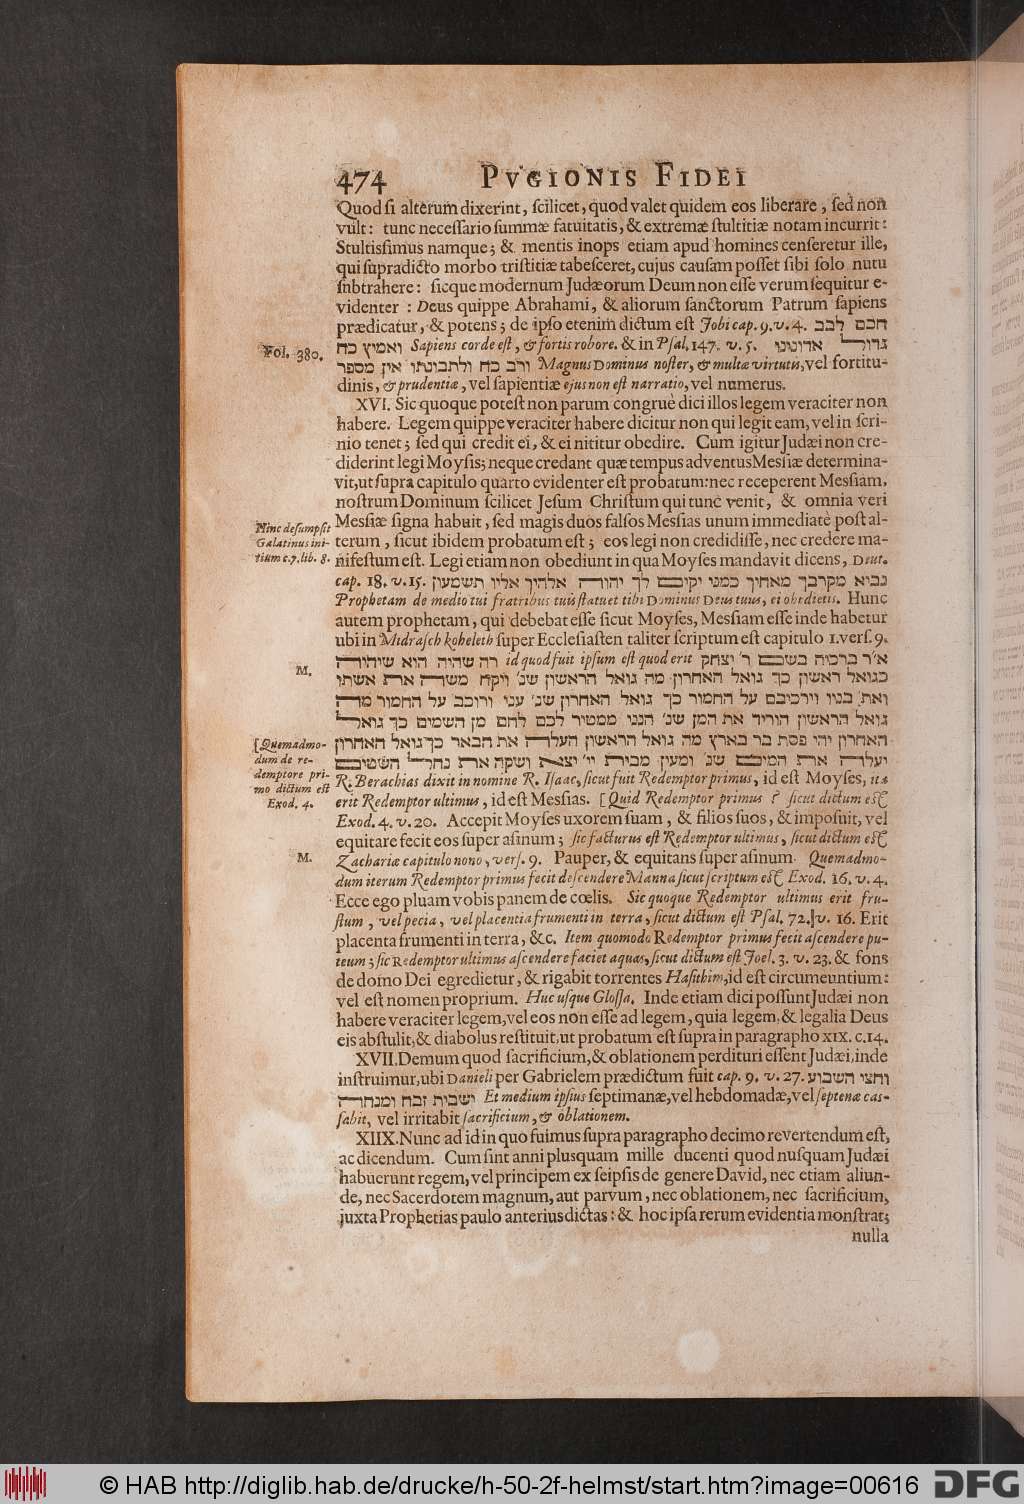 474 PVGIONIS FIDEI
Quod si alterum dixerint, scilicet, quod valet quidem eos liberare, sed non
vult: tunc necessario summæ fatuitatis, & extremæ stultitiæ notam incurrit:
Stultissimus namque; & mentis inops etiam apud homines censeretur ille,
qui supradicto morbo tristitiæ tabesceret, cujus causam posset sibi solo nutu
subtrahere: sicque modernum Judæorum Deum non esse verum sequitur e-
videnter: Deus quippe Abrahami, & aliorum sanctorum Patrum sapiens
prædicatur, & potens; de ipso etenim dictum est Jobi cap. 9. v. 4. חכם לבב
Fol. 380.
ואמיץ כח Sapiens corde est, & fortis robore. & in Psal. 147. v. 5. גדול אדונינו
ורב כח ולתבונתו אין מספר Magnus Dominus noster, & multæ virtutis, vel fortitu-
dinis, & prudentiæ, vel sapientiæ ejus non est narratio, vel numerus.
XVI. Sic quoque potest non parum congruè dici illos legem veraciter non
habere. Legem quippe veraciter habere dicitur non qui legit eam, vel in scri-
nio tenet; sed qui credit ei, & ei nititur obedire. Cum igitur Judæi non cre-
diderint legi Moysis; neque credant quæ tempus adventus Messiæ determina-
vit, ut supra capitulo quarto evidenter est probatum: nec receperent Messiam,
nostrum Dominum scilicet Jesum Christum qui tunc venit, & omnia veri
Messiæ signa habuit, sed magis duos falsos Messias unum immediatè post al-
terum, sicut ibidem probatum est; eos legi non credidisse, nec credere ma-
nifestum est. Legi etiam non obediunt in qua Moyses mandavit dicens, Deut.
Hinc desumpsit
Galatinus ini-
tium c. 7. lib. 8.
cap. 18. v. 15. נביא מקרבך מאחיך כמני יקים לך יהוה אלהיך אליו תשמעון
Prophetam de medio tui fratribus tuis statuet tibi Dominus Deus tuus, ei obedietis. Hunc
autem prophetam, qui debebat esse sicut Moyses, Messiam esse inde habetur
ubi in Midrasch koheleth super Ecclesiasten taliter scriptum est capitulo 1. vers. 9.
M.
רה שהיה הוא שיהוה id quod fuit ipsum est quod erit א״ר ברכיה בשם ר׳ יצחק
כגואל ראשון כך גואל האחרון מה גואל הראשון שנ׳ ויקח משה את אשתו
ואת בניו וירכיבם על החמור כך גואל האחרון שנ׳ עני ורוכב על החמור מה
גואל הראשון הוריד את המן שנ׳ הנני ממטיר לכם לחם מן השמים כך גואל
האחרון יהי פסת בר בארץ מה גואל הראשון העלה את הבאר כך גואל האחרון
יעלה את המים שנ׳ ומעין מבית יי׳ יצא ושקה את נחל השטים
[Quemadmo-
dum de re-
demptore pri-
mo dictum est
Exod. 4.
R. Berachias dixit in nomine R. Isaac, sicut fuit Redemptor primus, id est Moyses, ita
erit Redemptor ultimus, id est Messias. [Quid Redemptor primus? sicut dictum est]
Exod. 4. v. 20. Accepit Moyses uxorem suam, & filios suos, & imposuit, vel
equitare fecit eos super asinum; sic facturus est Redemptor ultimus, sicut dictum est]
M.
Zachariæ capitulo nono, vers. 9. Pauper, & equitans super asinum. Quemadmo-
dum iterum Redemptor primus fecit descendere Manna sicut scriptum est] Exod. 16. v. 4.
Ecce ego pluam vobis panem de cœlis. Sic quoque Redemptor ultimus erit fru-
stum, vel pecia, vel placentia frumenti in terra, sicut dictum est Psal. 72.]v. 16. Erit
placenta frumenti in terra, &c. Item quomodo Redemptor primus fecit ascendere pu-
teum; sic Redemptor ultimus ascendere faciet aquas, sicut dictum est Joel. 3. v. 23. & fons
de domo Dei egredietur, & rigabit torrentes Hasithim, id est circumeuntium:
vel est nomen proprium. Huc usque Glossa. Inde etiam dici possunt Judæi non
habere veraciter legem, vel eos non esse ad legem, quia legem, & legalia Deus
eis abstulit, & diabolus restituit, ut probatum est supra in paragrapho XIX. c. 14.
XVII. Demum quod sacrificium, & oblationem perdituri essent Judæi, inde
instruimur, ubi Danieli per Gabrielem prædictum fuit cap. 9. v. 27. וחצי השבוע
ישבות זבח ומנחה Et medium ipsius septimanæ, vel hebdomadæ, vel septenæ cas-
sabit, vel irritabit sacrificium, & oblationem.
XIIX. Nunc ad id in quo fuimus supra paragrapho decimo revertendum est,
ac dicendum. Cum sint anni plusquam mille ducenti quod nusquam Judæi
habuerunt regem, vel principem ex seipsis de genere David, nec etiam aliun-
de, nec Sacerdotem magnum, aut parvum, nec oblationem, nec sacrificium,
juxta Prophetias paulo anterius dictas: & hoc ipsa rerum evidentia monstrat;
nulla
© HAB http://diglib.hab.de/drucke/h-50-2f-helmst/start.htm?image=00616 DFG